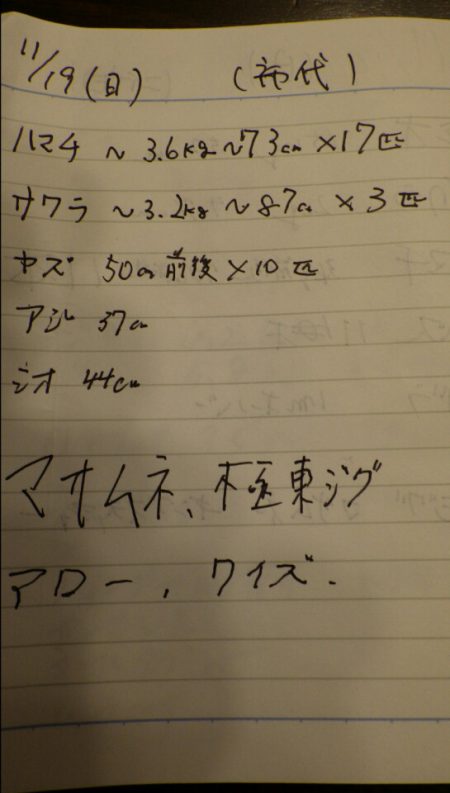 11/19(日) (初代)
ハマチ ~ 3.6kg ~73cm ×17匹
サワラ ~3.2kg ~87cm × 3匹
ヤズ 50cm前後×10匹
アジ 37cm
シオ 44cm
マオムネ、極東ジグ
アロー, ワイズ.